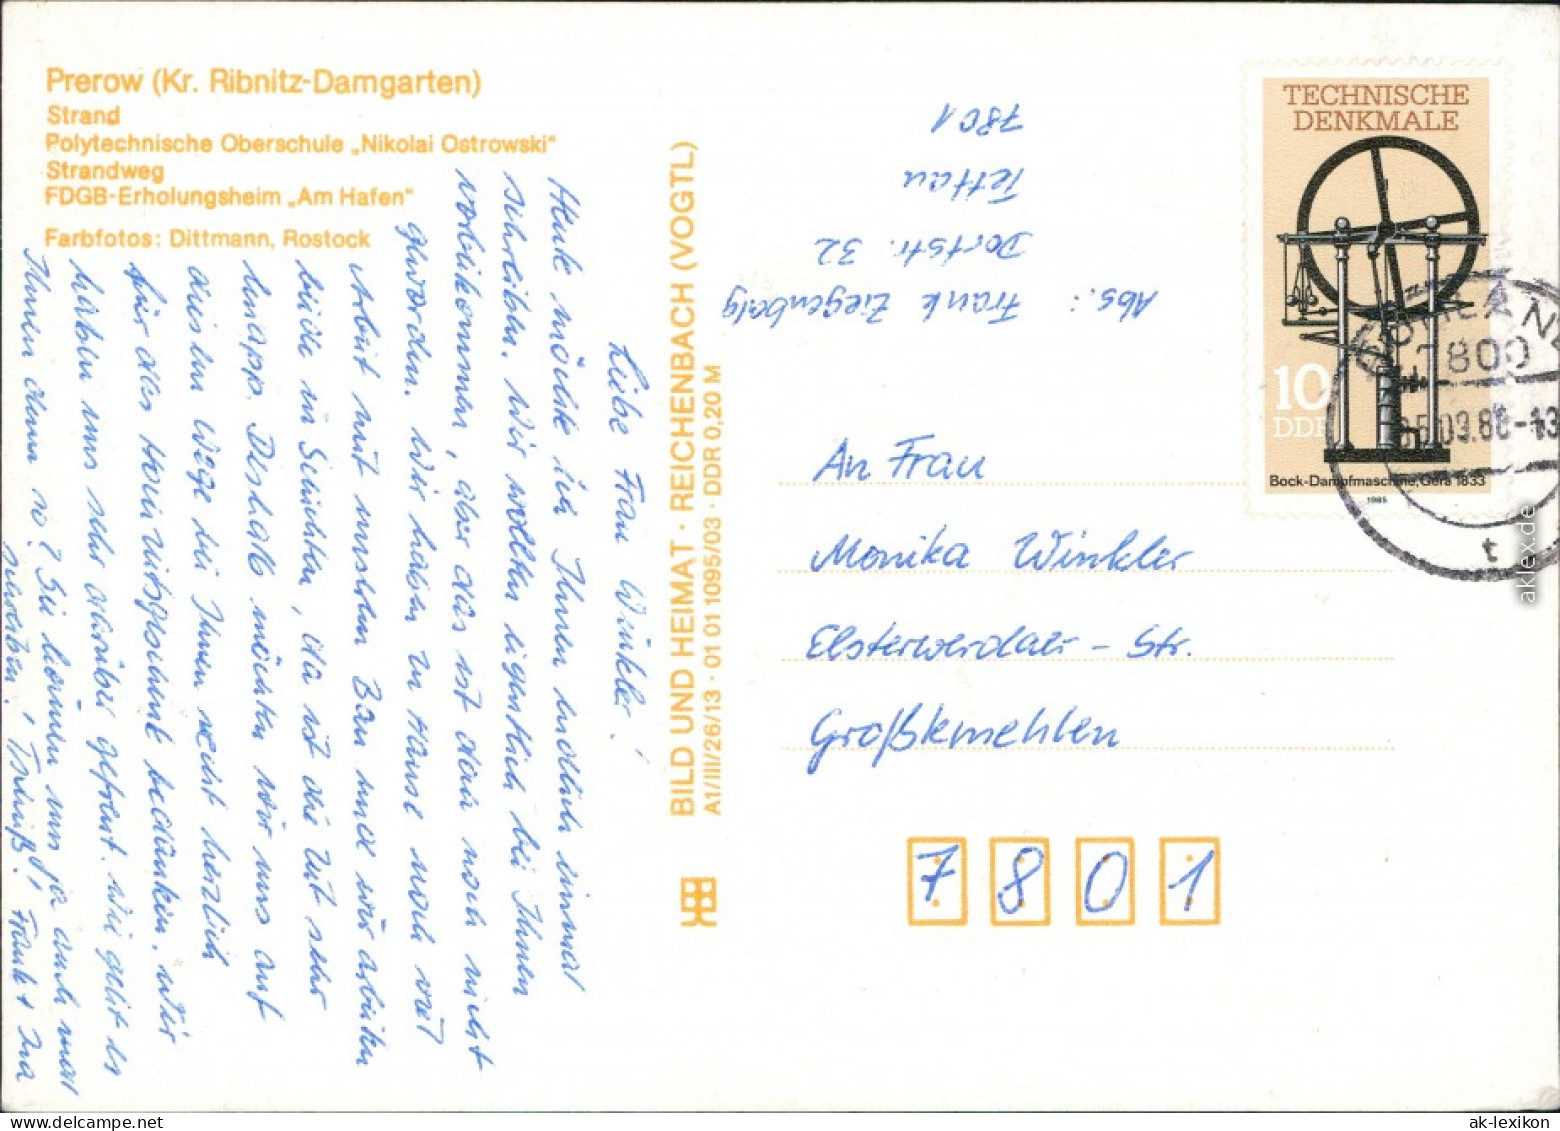 Prerow (Kr. Ribnitz-Damgarten)
Strand
Polytechnische Oberschule „Nikolai Ostrowski“
Strandweg
FDGB-Erholungsheim „Am Hafen“
Farbfotos: Dittmann, Rostock
Liebe Frau Winkler!
Heute möchte ich Ihnen endlich einmal
schreiben. Wir wollten eigentlich bei Ihnen
vorbeikommen, aber das ist dann noch nicht
geworden. Wir haben zu Hause noch viel
Arbeit mit unserem Bau und wir arbeiten
beide in Schichten, da ist die Zeit sehr
knapp. Deshalb möchten wir uns auf
diesem Wege bei Ihnen recht herzlich
für das Hochzeitsgeschenk bedanken. Wir
haben uns sehr darüber gefreut. Wie geht es
Ihnen denn so? Sie können uns ja auch mal
Tschüß! Frank +
BILD UND HEIMAT · REICHENBACH (VOGTL)
A1/III/26/13 · 01 01 1095/03 · DDR 0,20 M
Abs.: Frank Ziegenbalg
Dorfstr. 32
Tettau
7801
TECHNISCHE
DENKMALE
10
DDR
Bock-Dampfmaschine, Gera 1833
1985
7800
03.86-13
t
An Frau
Monika Winkler
Elsterwerdaer-Str.
Großkmehlen
7801
akleX.de
ak-lexikon